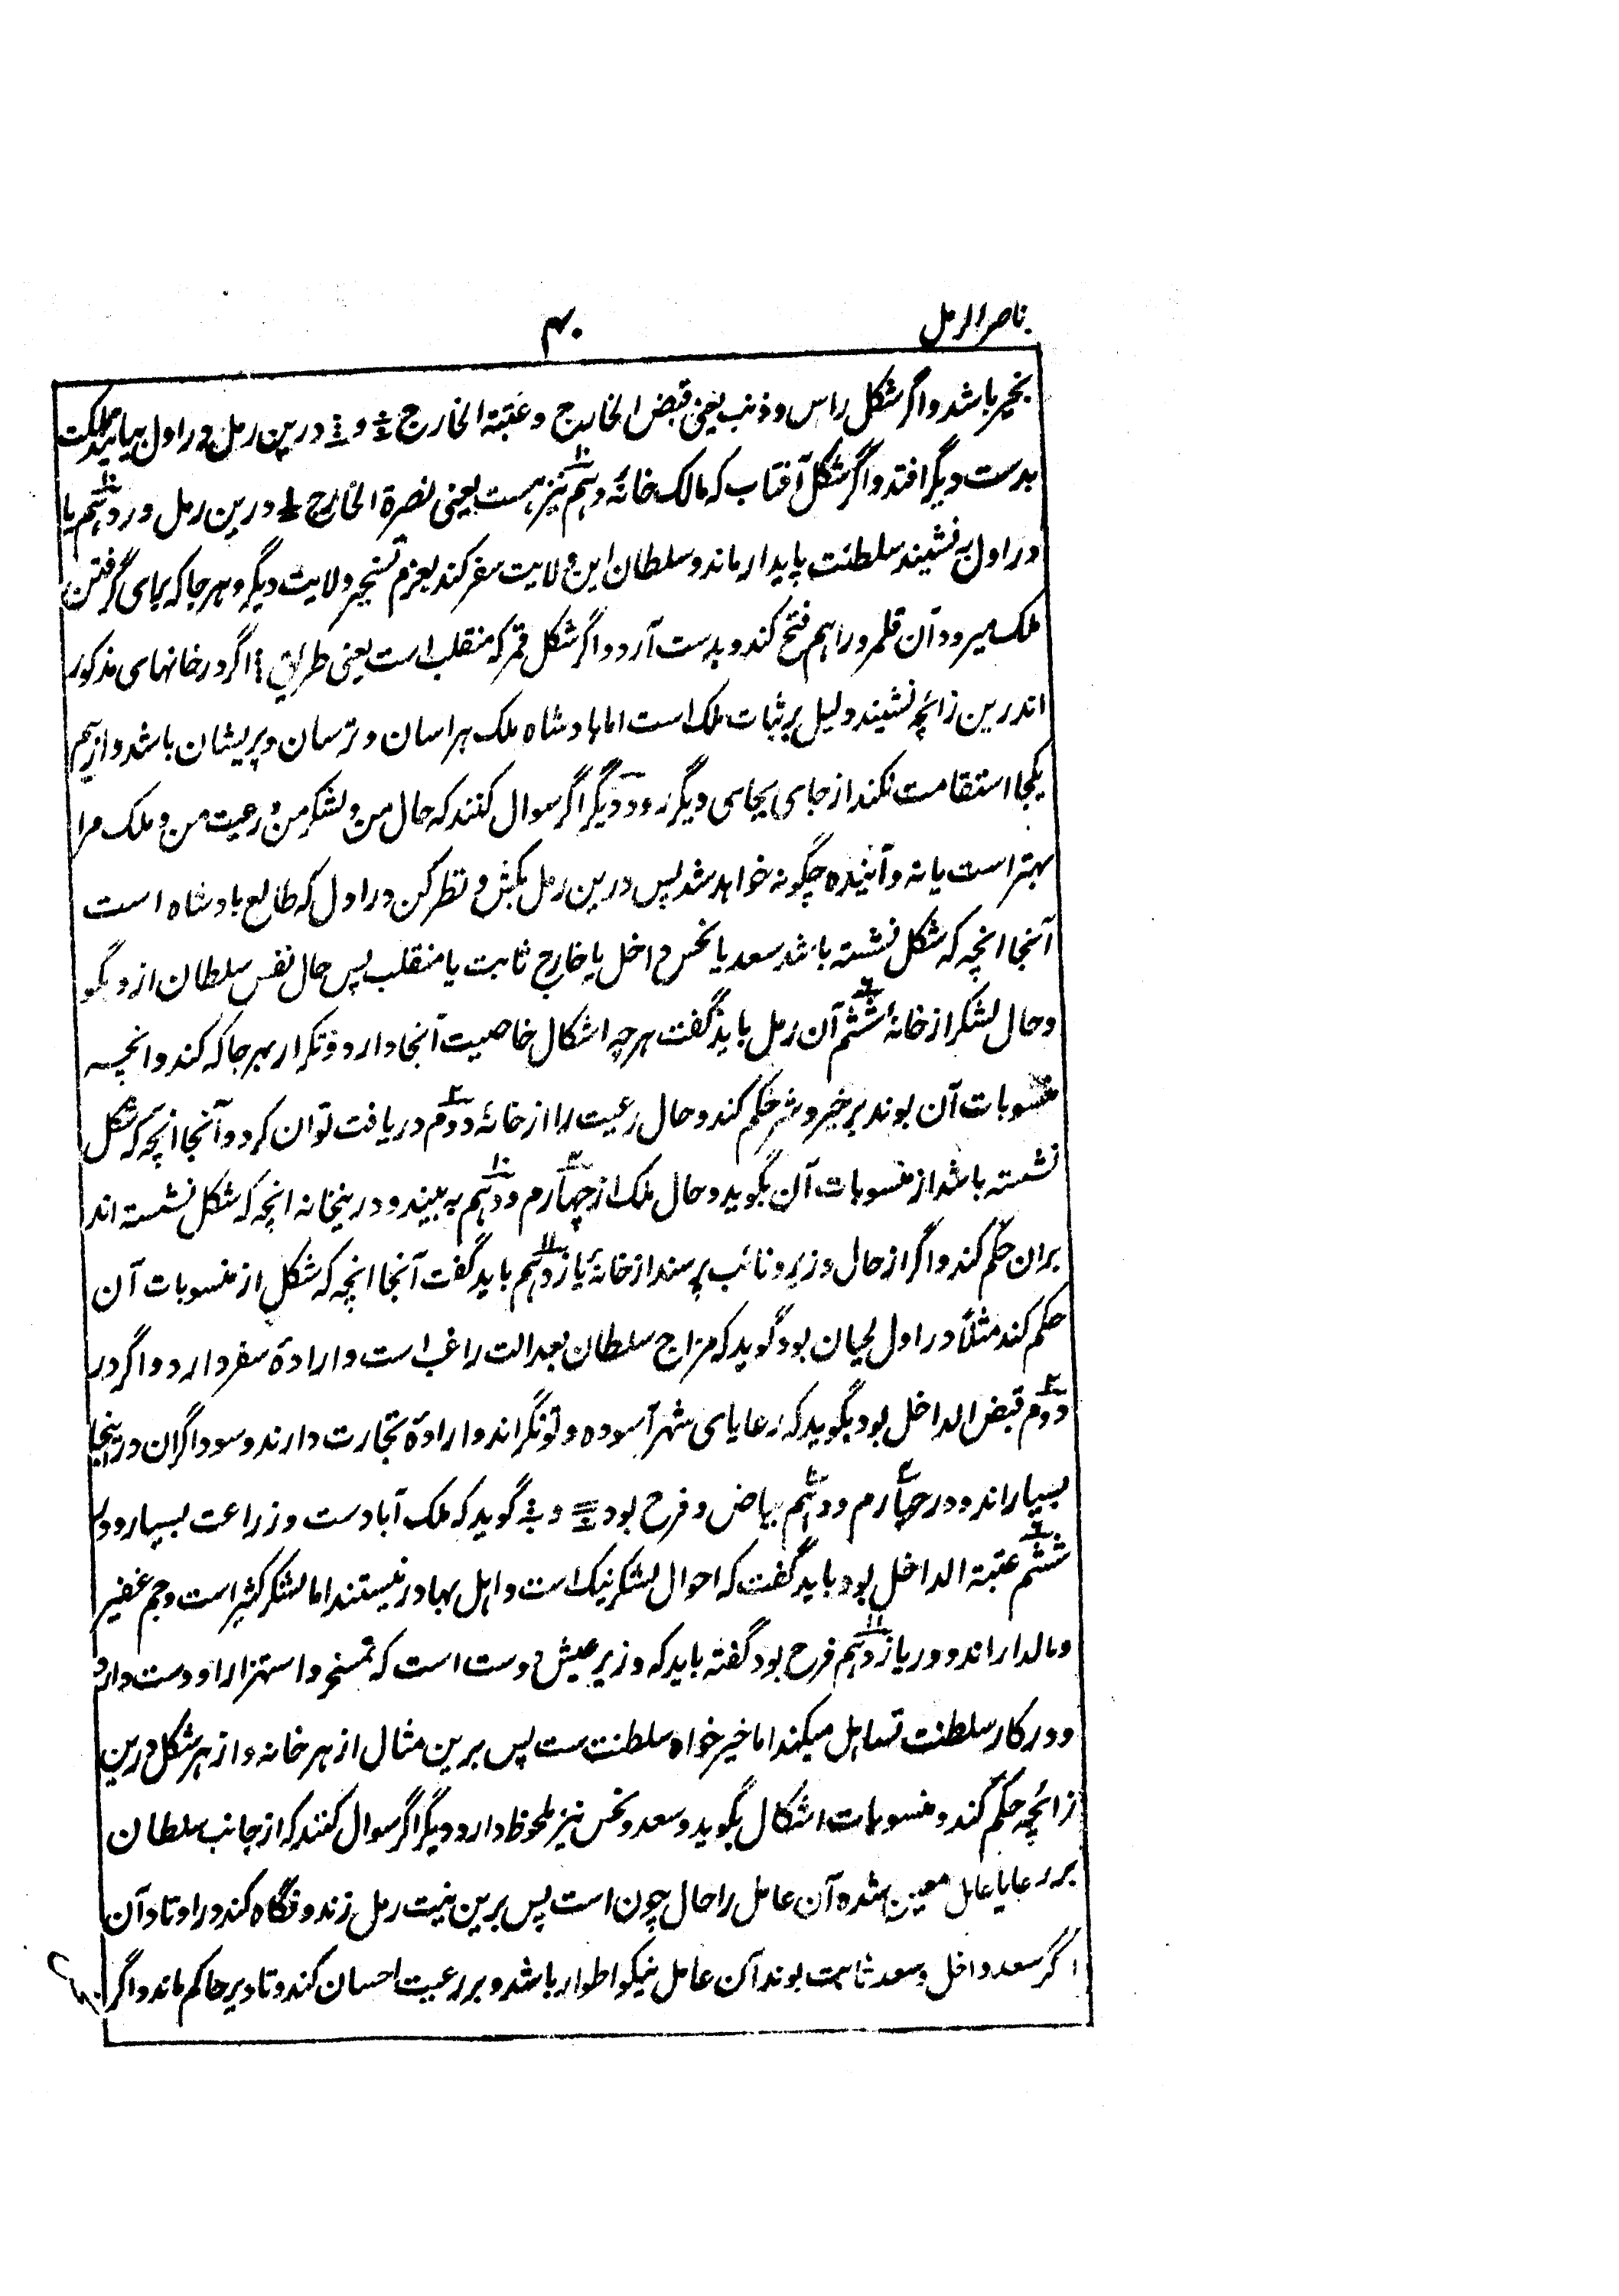 ناصر الرمل
۴۰
بخیر باشد و اگر شکل راس و ذنب یعنی قبض الخارج و عتبة الخارج و درین رمل در اول بیاید مملکت
بدست دیگر افتد و اگر شکل آفتاب که مالک خانهٔ دهم نیز هست یعنی نصرة الخارج درین رمل در دهم یا
در اول بنشیند سلطنت پایدار ماند و سلطان این ولایت سفر کند بعزم تسخیر ولایت دیگر و هر جا که برای گرفتن
ملک میرود آن قلمرو را هم فتح کند و بدست آرد و اگر شکل قمر که منقلب است یعنی طریق اگر در خانهای مذکور
اندرین زائچه نشیند دلیل بر ثبات ملک است اما پادشاه ملک هراسان و ترسان و پریشان باشد و از بیم
یکجا استقامت نکند از جای بجای دیگر رود دیگر اگر سوال کنند که حال من و لشکر من و رعیت من و ملک مرا
بهتر است یا نه و آینده چگونه خواهد شد پس درین رمل بکش و نظر کن در اول که طالع بادشاه است
آنجا انچه که شکل نشسته باشد سعد یا نحس داخل یا خارج ثابت یا منقلب پس حال نفس سلطان ازو بگو
و حال لشکر از خانهٔ ششم آن رمل باید گفت هر چه اشکال خاصیت آنجا دارد و تکرار بهر جا که کند و انچه
منسوبات آن بوند بر خیر و شر حکم کند و حال رعیت را از خانهٔ دوم دریافت توان کرد و آنجا انچه که شکل
نشسته باشد از منسوبات آن بگوید و حال ملک از چهارم و دهم به بیند و درینخانه انچه که شکل نشسته اند
بران حکم کند و اگر از حال وزیر و نائب پرسند از خانهٔ یازدهم باید گفت آنجا انچه که شکل از منسوبات آن
حکم کند مثلاً در اول لحیان بود گوید که مزاج سلطان بعدالت راغب است و ارادهٔ سفر دارد و اگر در
دوم قبض الداخل بود بگوید که رعایای شهر آسوده و تونگر اند و ارادهٔ تجارت دارند و سوداگران درینجا
بسیار اند و در چهارم و دهم بیاض و فرح بود و گوید که ملک آباد ست و زراعت بسیار و در
ششم عتبة الداخل بود باید گفت که احوال لشکر نیک است و اهل بهادر نیستند اما لشکر کثیر است و جم غفیر
و مالدار اند و در یازدهم فرح بود گفته باید که وزیر عیش دوست است که تمسخر و استهزا را دوست دارد
و در کار سلطنت تساهل میکند اما خیر خواه سلطنت ست پس برین مثال از هر خانه و از هر شکل درین
زائچه حکم کند و منسوبات اشکال بگوید و سعد و نحس نیز ملحوظ دارد دیگر اگر سوال کنند که از جانب سلطان
بر رعایا عامل معین شده آن عامل را حال چون است پس برین نیت رمل زند و نگاه کند در اوتاد آن
اگر سعد داخل و سعد ثابت بوند آن عامل نیکو اطوار باشد و بر رعیت احسان کند و تا دیر حاکم ماند و اگر